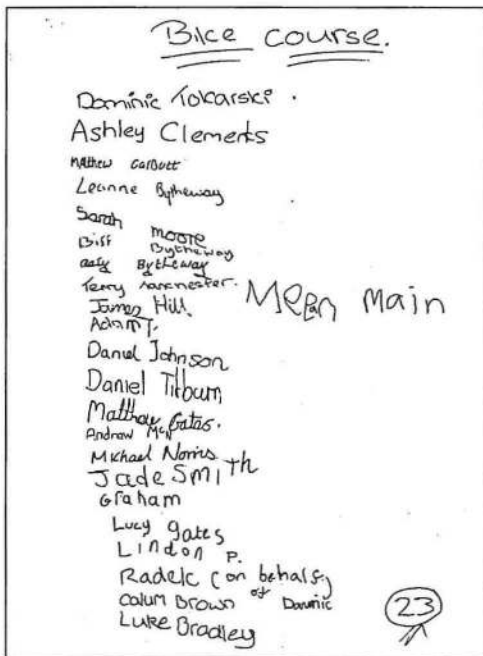 Bike course.
Dominic Tokarski .
Ashley Clements
Mathew Garbutt
Leanne Bytheway
Sarah Moore
Biff Bytheway
Bytheway
Terry Manchester.
Mean main
James Hill
Adam T.
Daniel Johnson
Daniel Tilburn
Matthew Gates.
Andrew McN
Michael Norris
Jade Smith
Graham
Lucy gates
Lindon P.
Radek (on behalf
of Dominic
Calum Brown
Luke Bradley
23